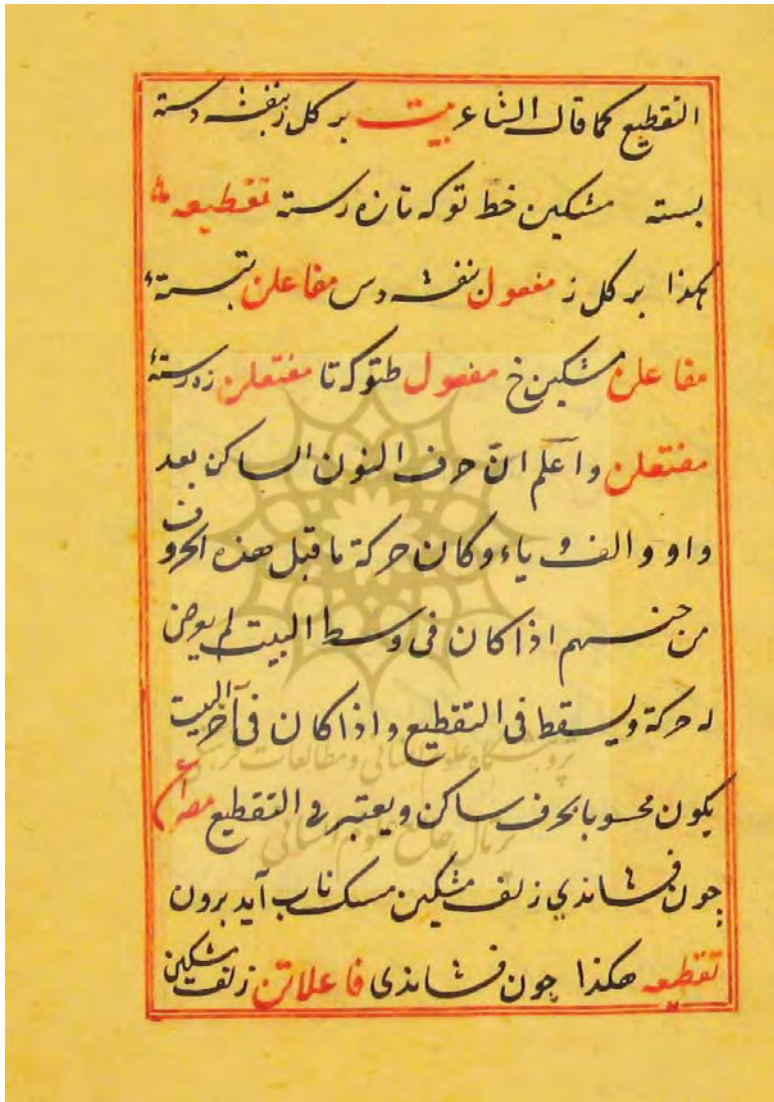 التقطيع كما قال الشاعر بيت بر كل ز بنفشه دسته
بسته مشكين خط تو كه تازه رسته تقطيعه
هكذا بر كل ز مفعول بنفشه دس مفاعلن تبسته
مفاعلن مشكين خ مفعول طتوكه تا مفتعلن زه رسته
مفتعلن واعلم انّ حرف النون الساكن بعد
واو والف و ياء وكان حركة ما قبل هذه الحروف
من جنسهم اذا كان فى وسط البيت لم يعرض
له حركة ويسقط فى التقطيع واذا كان فى آخر البيت
يكون محسوبا بحرف ساكن ويعتبر فى التقطيع مصراع
چون فشاندي زلف مشكين مسك ناب آيد برون
تقطيعه هكذا چون فشاندى فاعلاتن زلف مشكين
پژوهشگاه علوم انسانی و مطالعات فرهنگی
پرتال جامع علوم انسانی